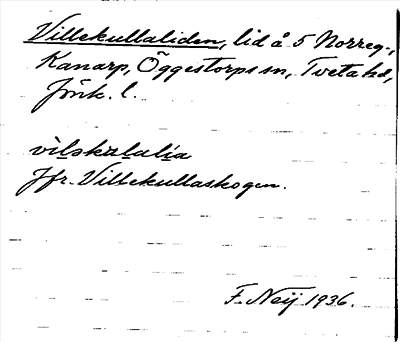 Villekullaliden, lid å 5 Norreg.,
Kanarp, Öggestorps sn, Tveta hd,
Jönk. l.
vìlskulalia
Jfr. Villekullaskogen.
F. Neij 1936.